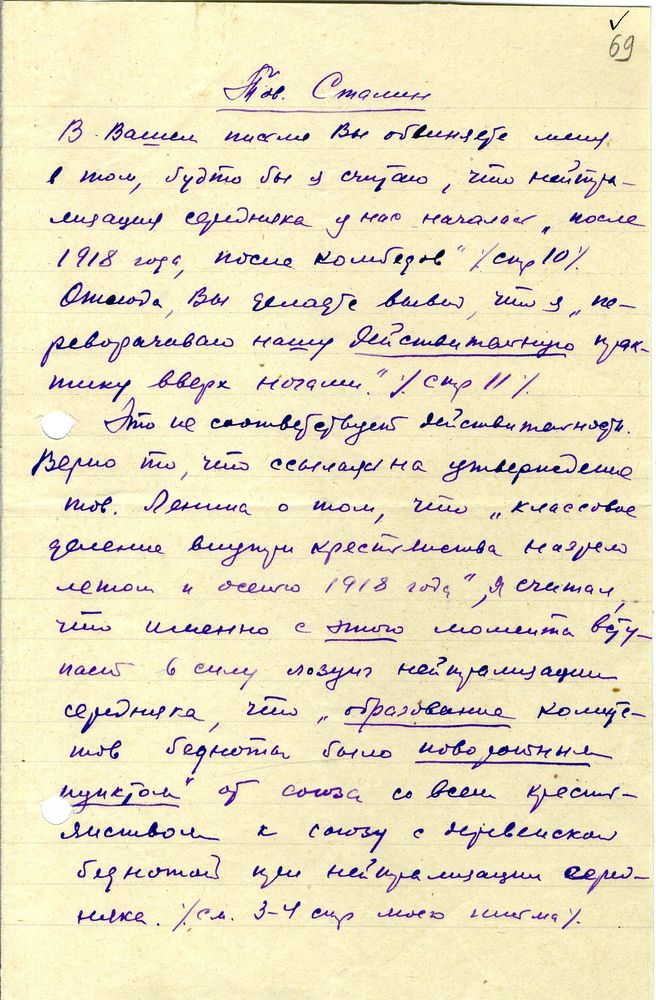 69
Тов. Сталин
В Вашем письме Вы обвиняете меня
в том, будто бы я считаю, что нейтра-
лизация середняка у нас началась „после
1918 года, после комбедов" /стр 10/.
Отсюда, Вы делаете вывод, что я „пе-
реворачиваю нашу действительную прак-
тику вверх ногами." /стр 11/.
Это не соответствует действительности.
Верно то, что ссылаясь на утверждение
тов. Ленина о том, что „классовое
деление внутри крестьянства назрело
летом и осенью 1918 года", я считал,
что именно с этого момента всту-
пает в силу лозунг нейтрализации
середняка, что „образование комите-
тов бедноты было поворотным
пунктом" от союза со всем кресть-
янством к союзу с деревенской
беднотой при нейтрализации серед-
няка. /см. 3-4 стр моего письма/.